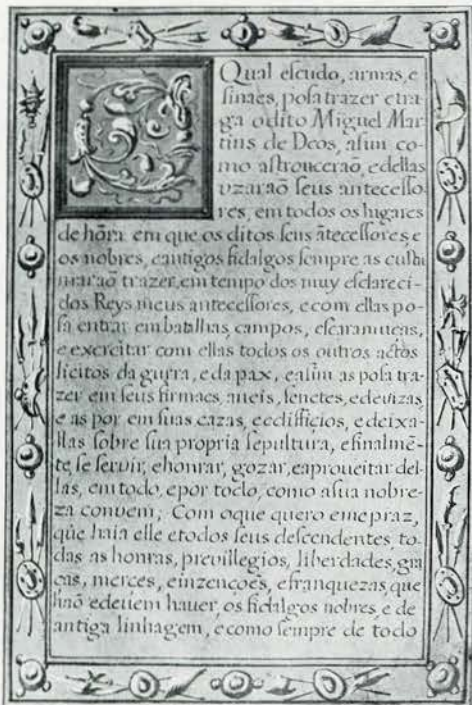 O Qual eſcudo, armas, e
ſinaes, poſa trazer e tra-
ga o dito Miguel Mar-
tins de Deos, aſim co-
mo aſtrouceraõ, e dellas
vzaraõ ſeus anteceſſo-
res, em todos os lugares
de hõra em que os ditos ſeus ãteceſſores, e
os nobres, e antigos fidalgos ſempre as coſtu
maraõ trazer, em tempo dos muy eſclareci-
dos Reys meus anteceſſores, e com ellas po-
ſa entrar em batalhas, campos, eſcaramuças,
e exercitar com ellas todos os outros actos
licitos da guerra, e da pax, e aſim as poſa tra-
zer em ſeus firmaes, aneis, ſenetes, e deuizas,
e as por em ſuas cazas, e edifficios, e deixa-
llas ſobre ſua propria ſepultura, e finalmẽ-
te, ſe ſeruir, e honrar, gozar, e aproueitar del-
las, em todo, e por todo, como a ſua nobre-
za conuem; Com o que quero e me praz,
que haia elle e todos ſeus deſcendentes to-
das as honras, preuillegios, liberdades, gra
cas, merces, e inzençoẽs, e franquezas, que
haõ e deuem hauer, os fidalgos nobres, e de
antiga linhagem, e como ſempre de todo